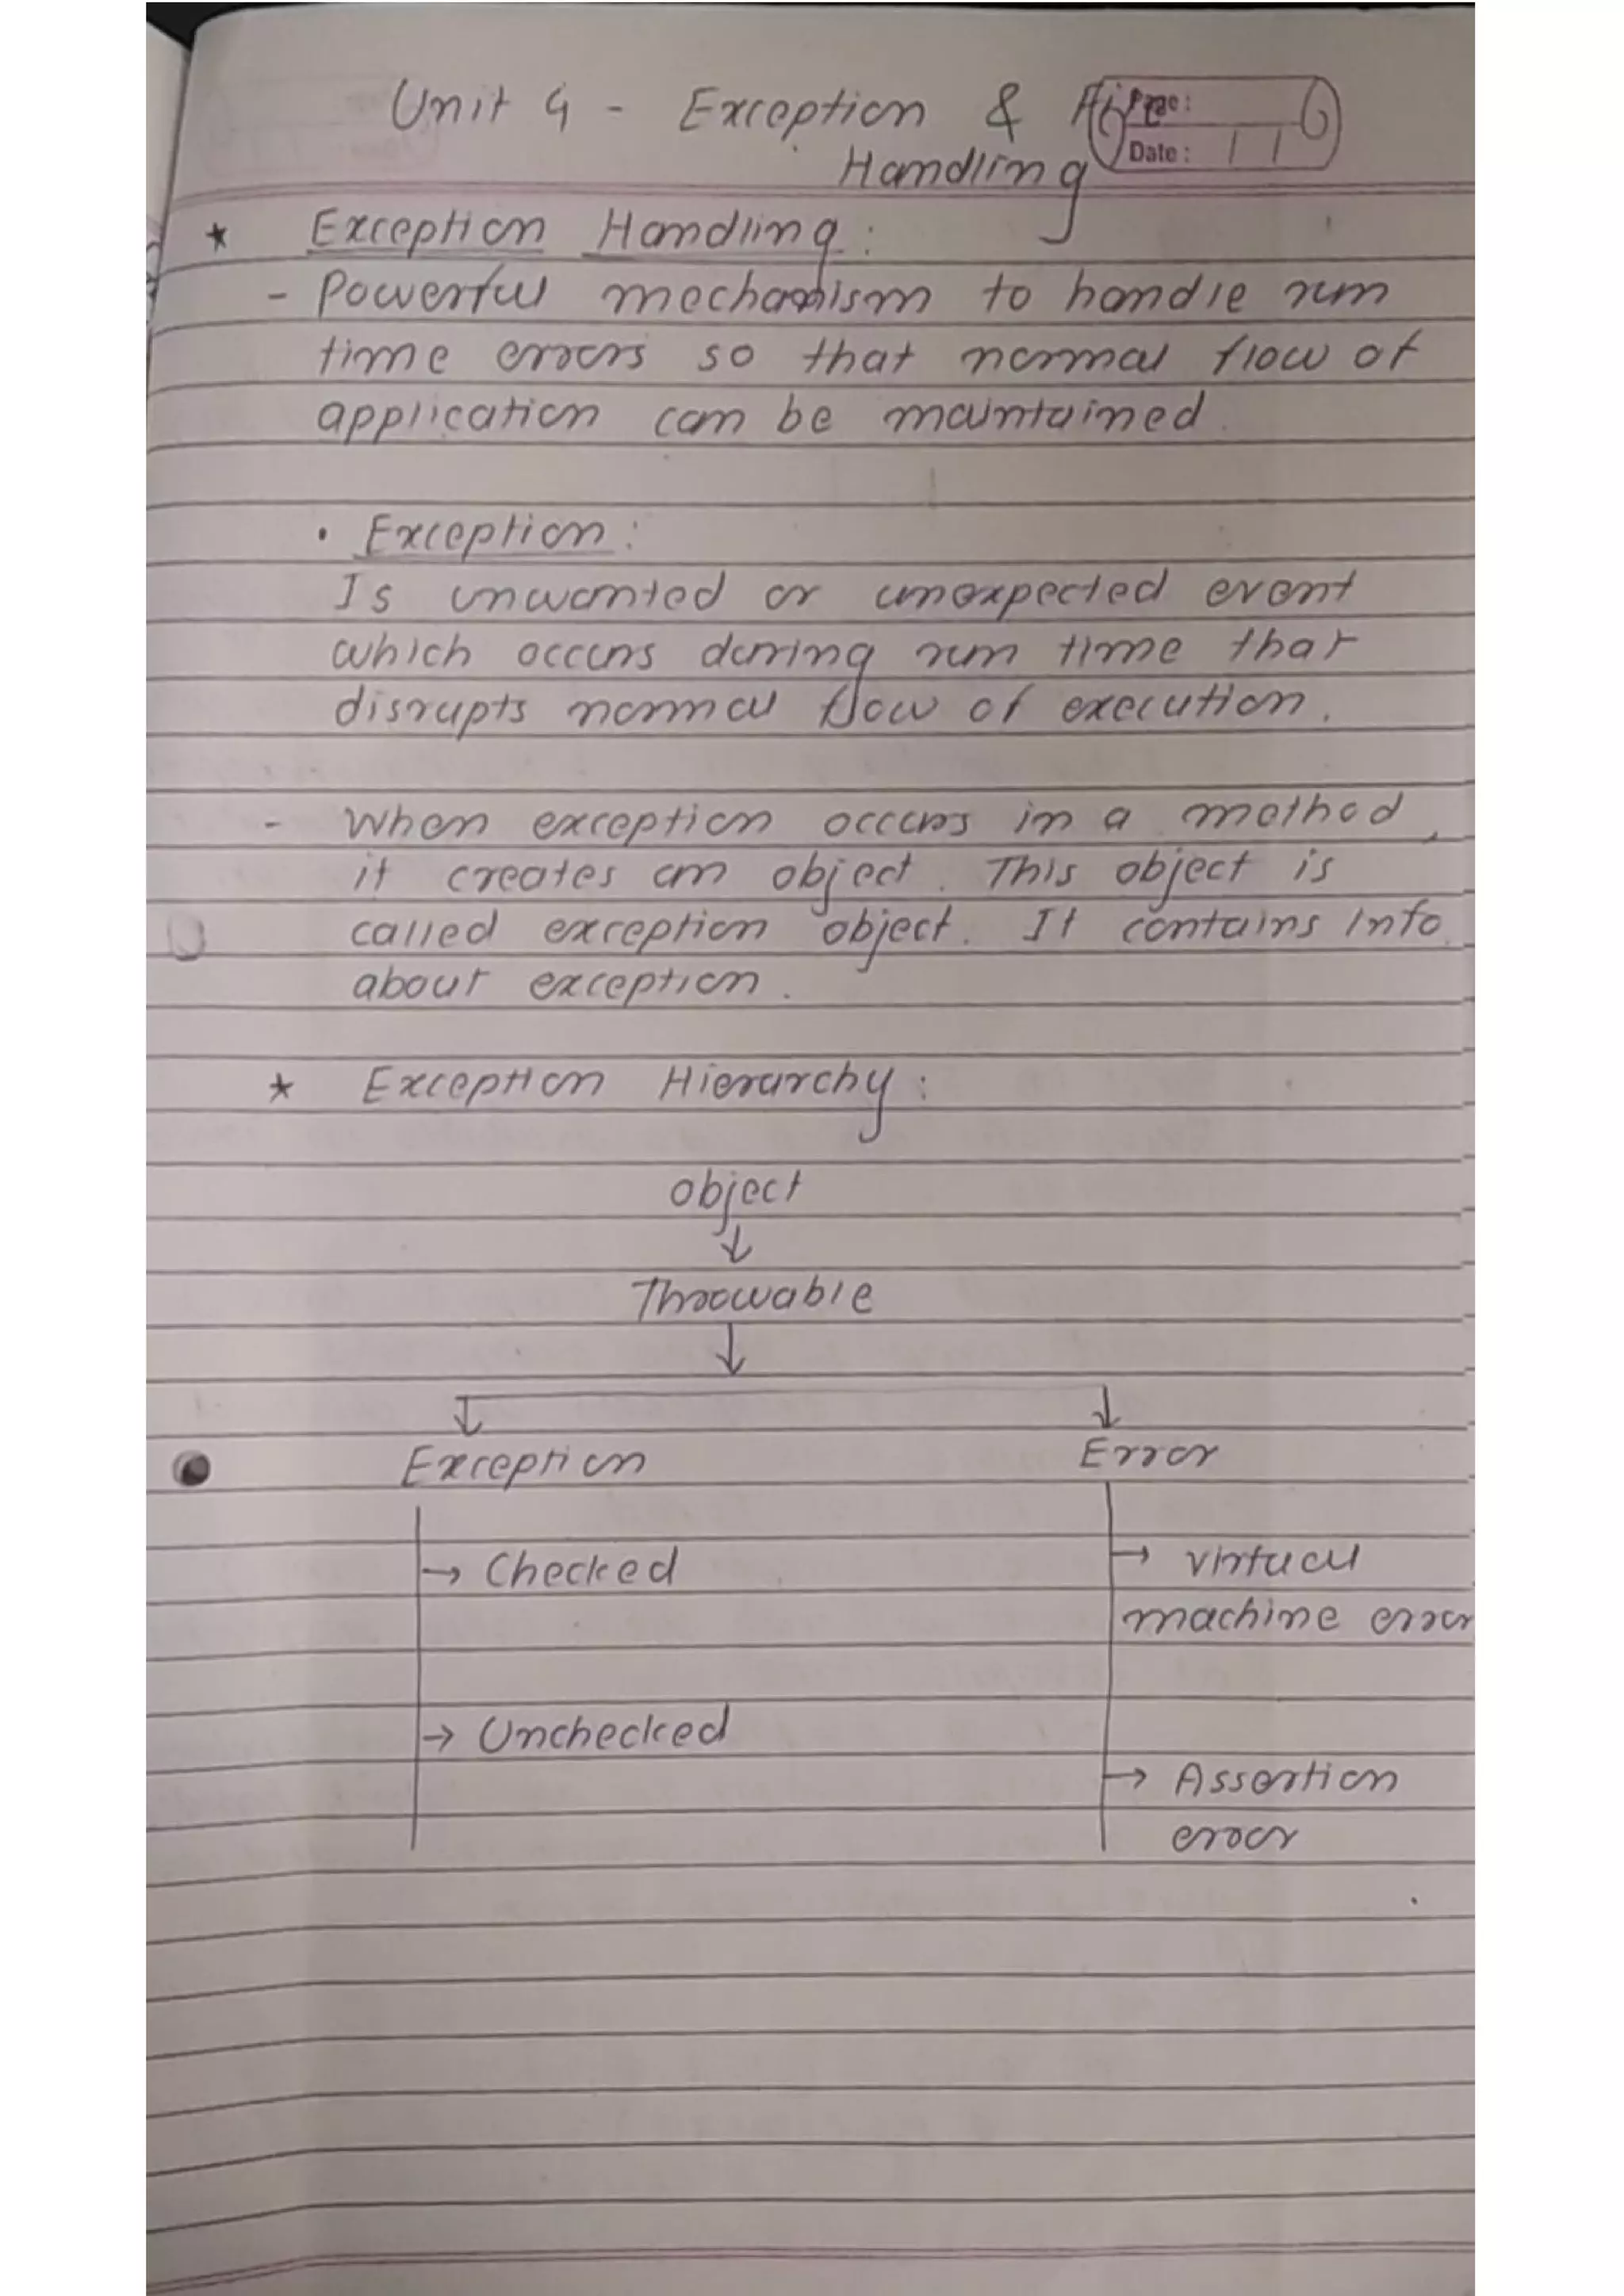 Unit 4 - Exception & File
Page:
Date:
Handling
* Exception Handling :
- Powerful mechanism to handle run
time errors so that normal flow of
application can be maintained.
• Exception :
Is unwanted or unexpected event
which occurs during run time that
disrupts normal flow of execution.
- When exception occurs in a method,
it creates an object. This object is
called exception object. It contains info.
about exception.
* Exception Hierarchy :
object
↓
Throwable
↓
↓ ↓
Exception Error
→ Checked → virtual
machine error
→ Unchecked
→ Assertion
error